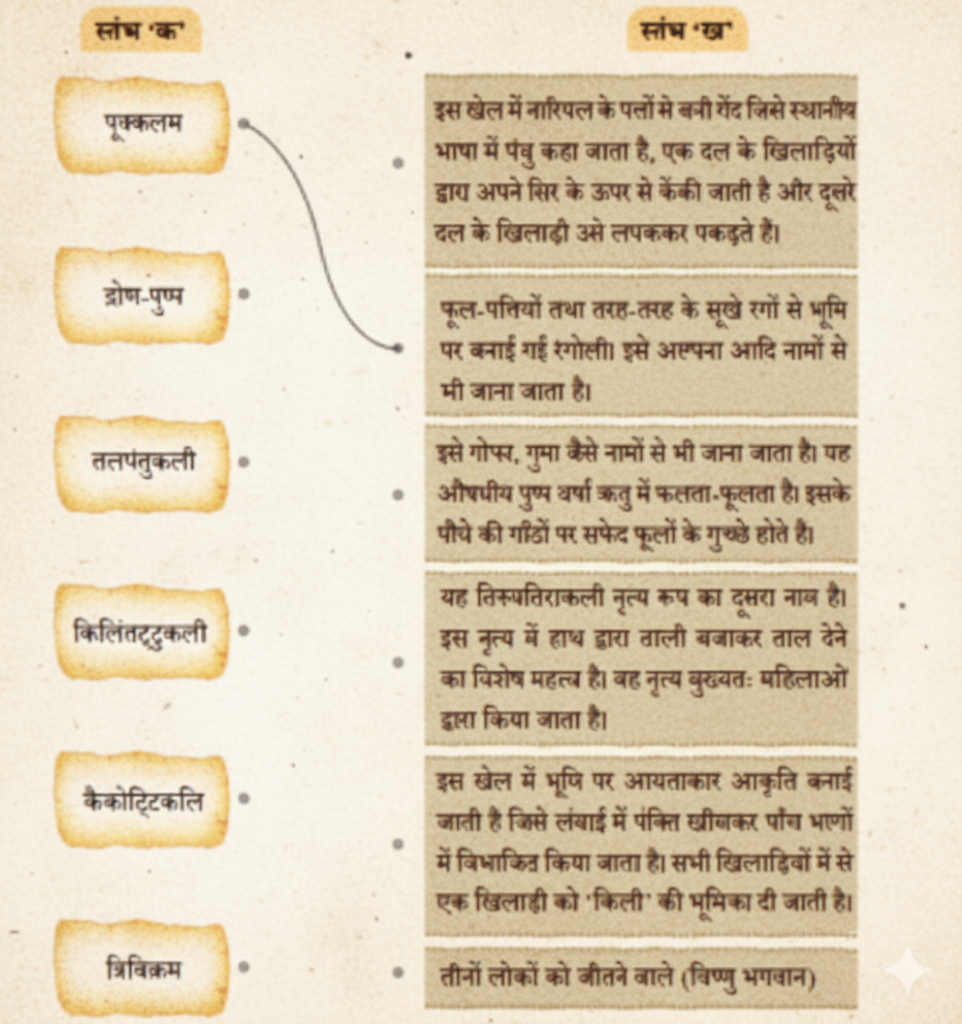 स्तंभ ‘क’
स्तंभ ‘ख’
पूक्कलम
द्रोण-पुष्प
तलपंतुकली
किलिंतट्टुकली
कैकोट्टिकलि
त्रिविक्रम
इस खेल में नारियल के पत्तों से बनी गेंद जिसे स्थानीय
भाषा में पंतु कहा जाता है, एक दल के खिलाड़ियों
द्वारा अपने सिर के ऊपर से फेंकी जाती है और दूसरे
दल के खिलाड़ी उसे लपककर पकड़ते हैं।
फूल-पत्तियों तथा तरह-तरह के सूखे रंगों से भूमि
पर बनाई गई रंगोली। इसे अल्पना आदि नामों से
भी जाना जाता है।
इसे गुमा जैसे नामों से भी जाना जाता है। यह
औषधीय पुष्प वर्षा ऋतु में फलता-फूलता है। इसके
पौधे की गाँठों पर सफेद फूलों के गुच्छे होते है।
यह नृत्य रूप का दूसरा नाम है।
इस नृत्य में हाथ द्वारा ताली बजाकर ताल देने
का विशेष महत्व है। यह नृत्य मुख्यतः महिलाओं
द्वारा किया जाता है।
इस खेल में भूमि पर आयताकार आकृति बनाई
जाती है जिसे लंबाई में पंक्ति खींचकर पाँच भागों
में विभाजित किया जाता है। सभी खिलाड़ियों में से
एक खिलाड़ी को ‘किली’ की भूमिका दी जाती है।
तीनों लोकों को जीतने वाले (विष्णु भगवान)